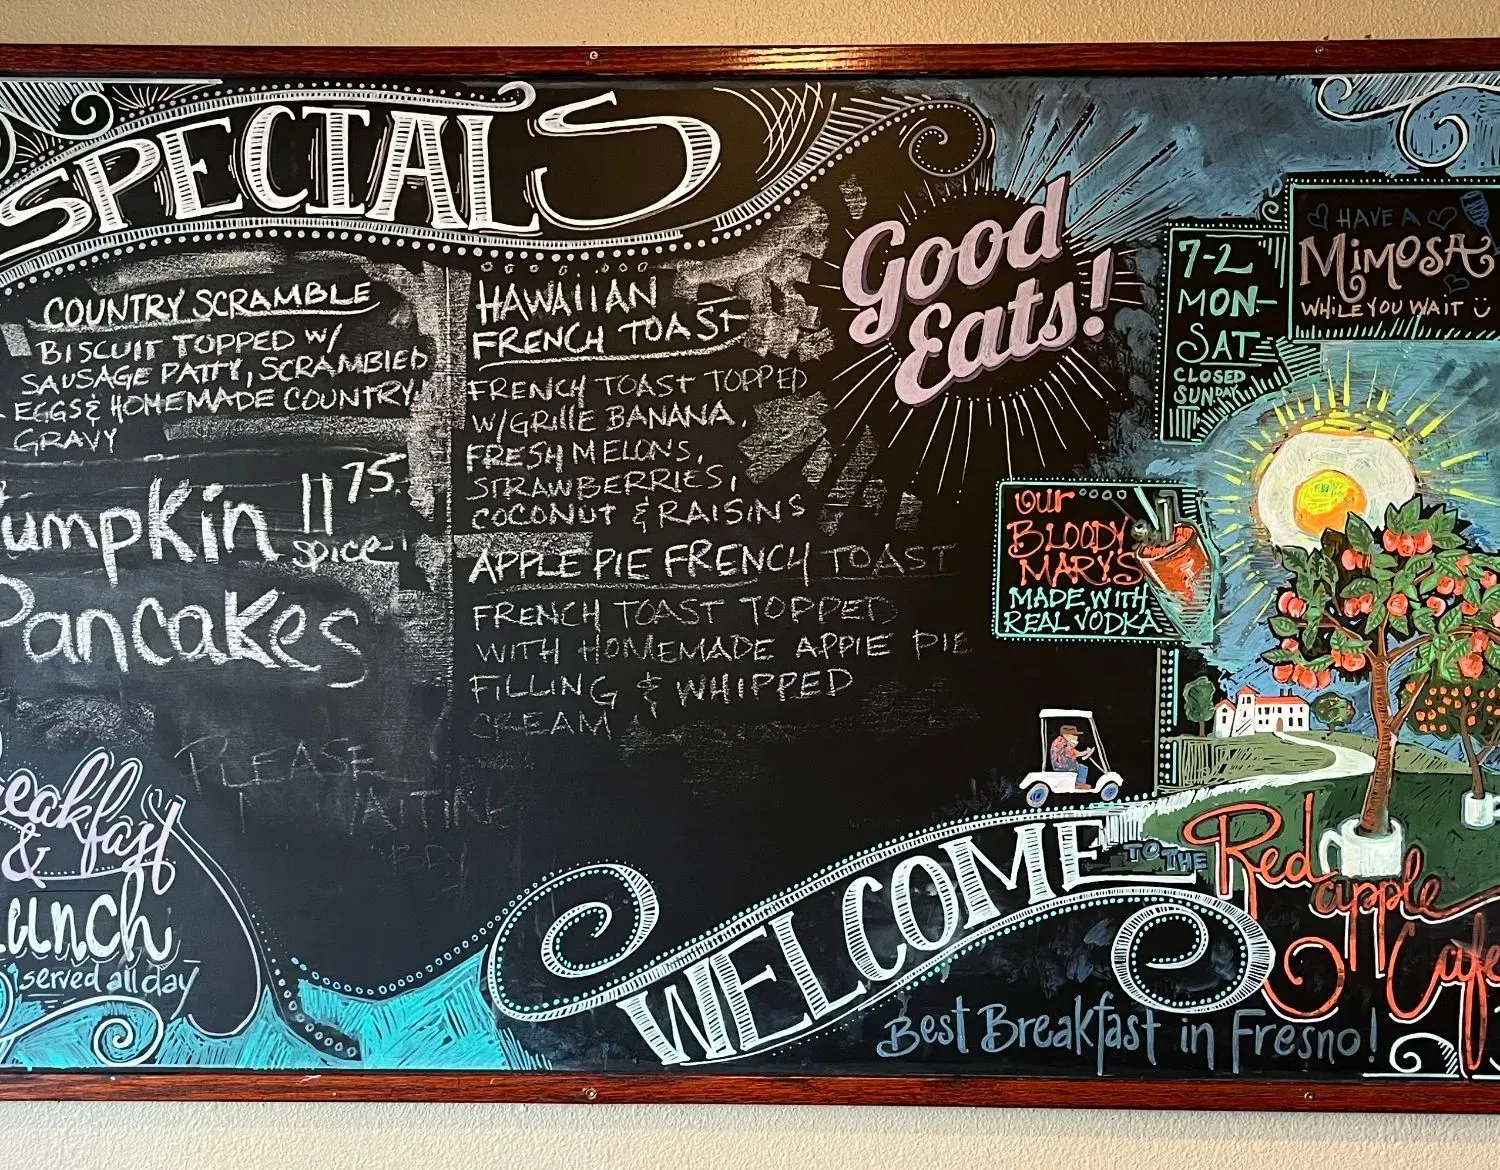 SPECIALS
COUNTRY SCRAMBLE
BISCUIT TOPPED W/
SAUSAGE PATTY, SCRAMBLED
EGGS & HOMEMADE COUNTRY
GRAVY
umpkin 11 75
spice
Pancakes
HAWAIIAN
FRENCH TOAST
FRENCH TOAST TOPPED
W/GRILLE BANANA,
FRESH MELONS,
STRAWBERRIES,
COCONUT & RAISINS
APPLE PIE FRENCH TOAST
FRENCH TOAST TOPPED
WITH HOMEMADE APPLE PIE
FILLING & WHIPPED
CREAM
PLEASE
WAITING
eakfast
&
unch
served all day
Good
Eats!
7-2
MON-
SAT
CLOSED
SUNDAY
HAVE A
MIMOSA
WHILE YOU WAIT
Our
BLOODY
MARY'S
MADE WITH
REAL VODKA
WELCOME TO THE
Red
apple
Cafe
Best Breakfast in Fresno!